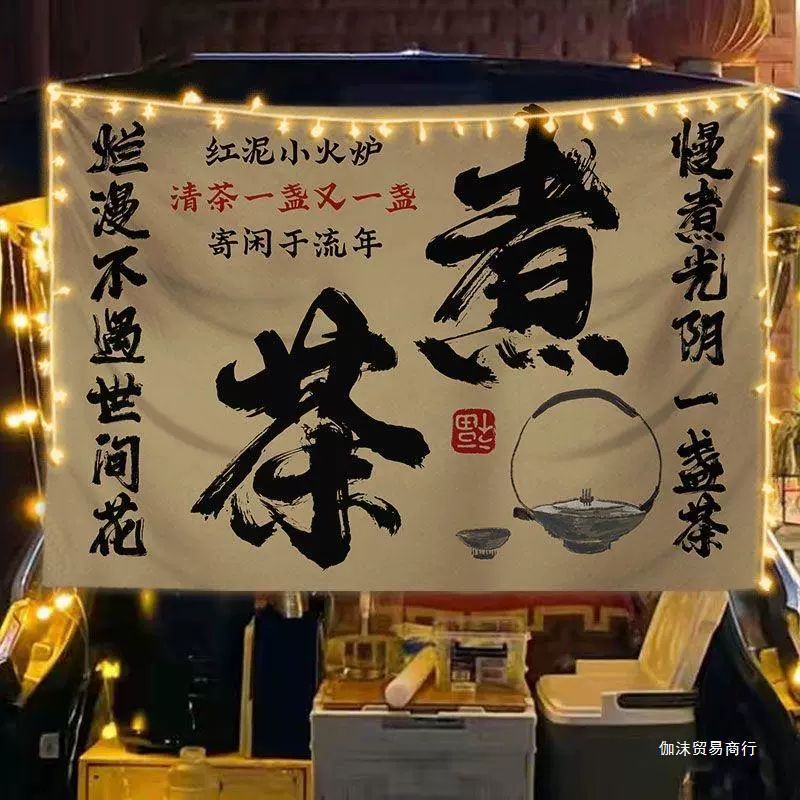 慢煮光阴一盏茶
煮茶
红泥小火炉
清茶一盏又一盏
寄闲于流年
烂漫不過世间花
伽沫贸易商行